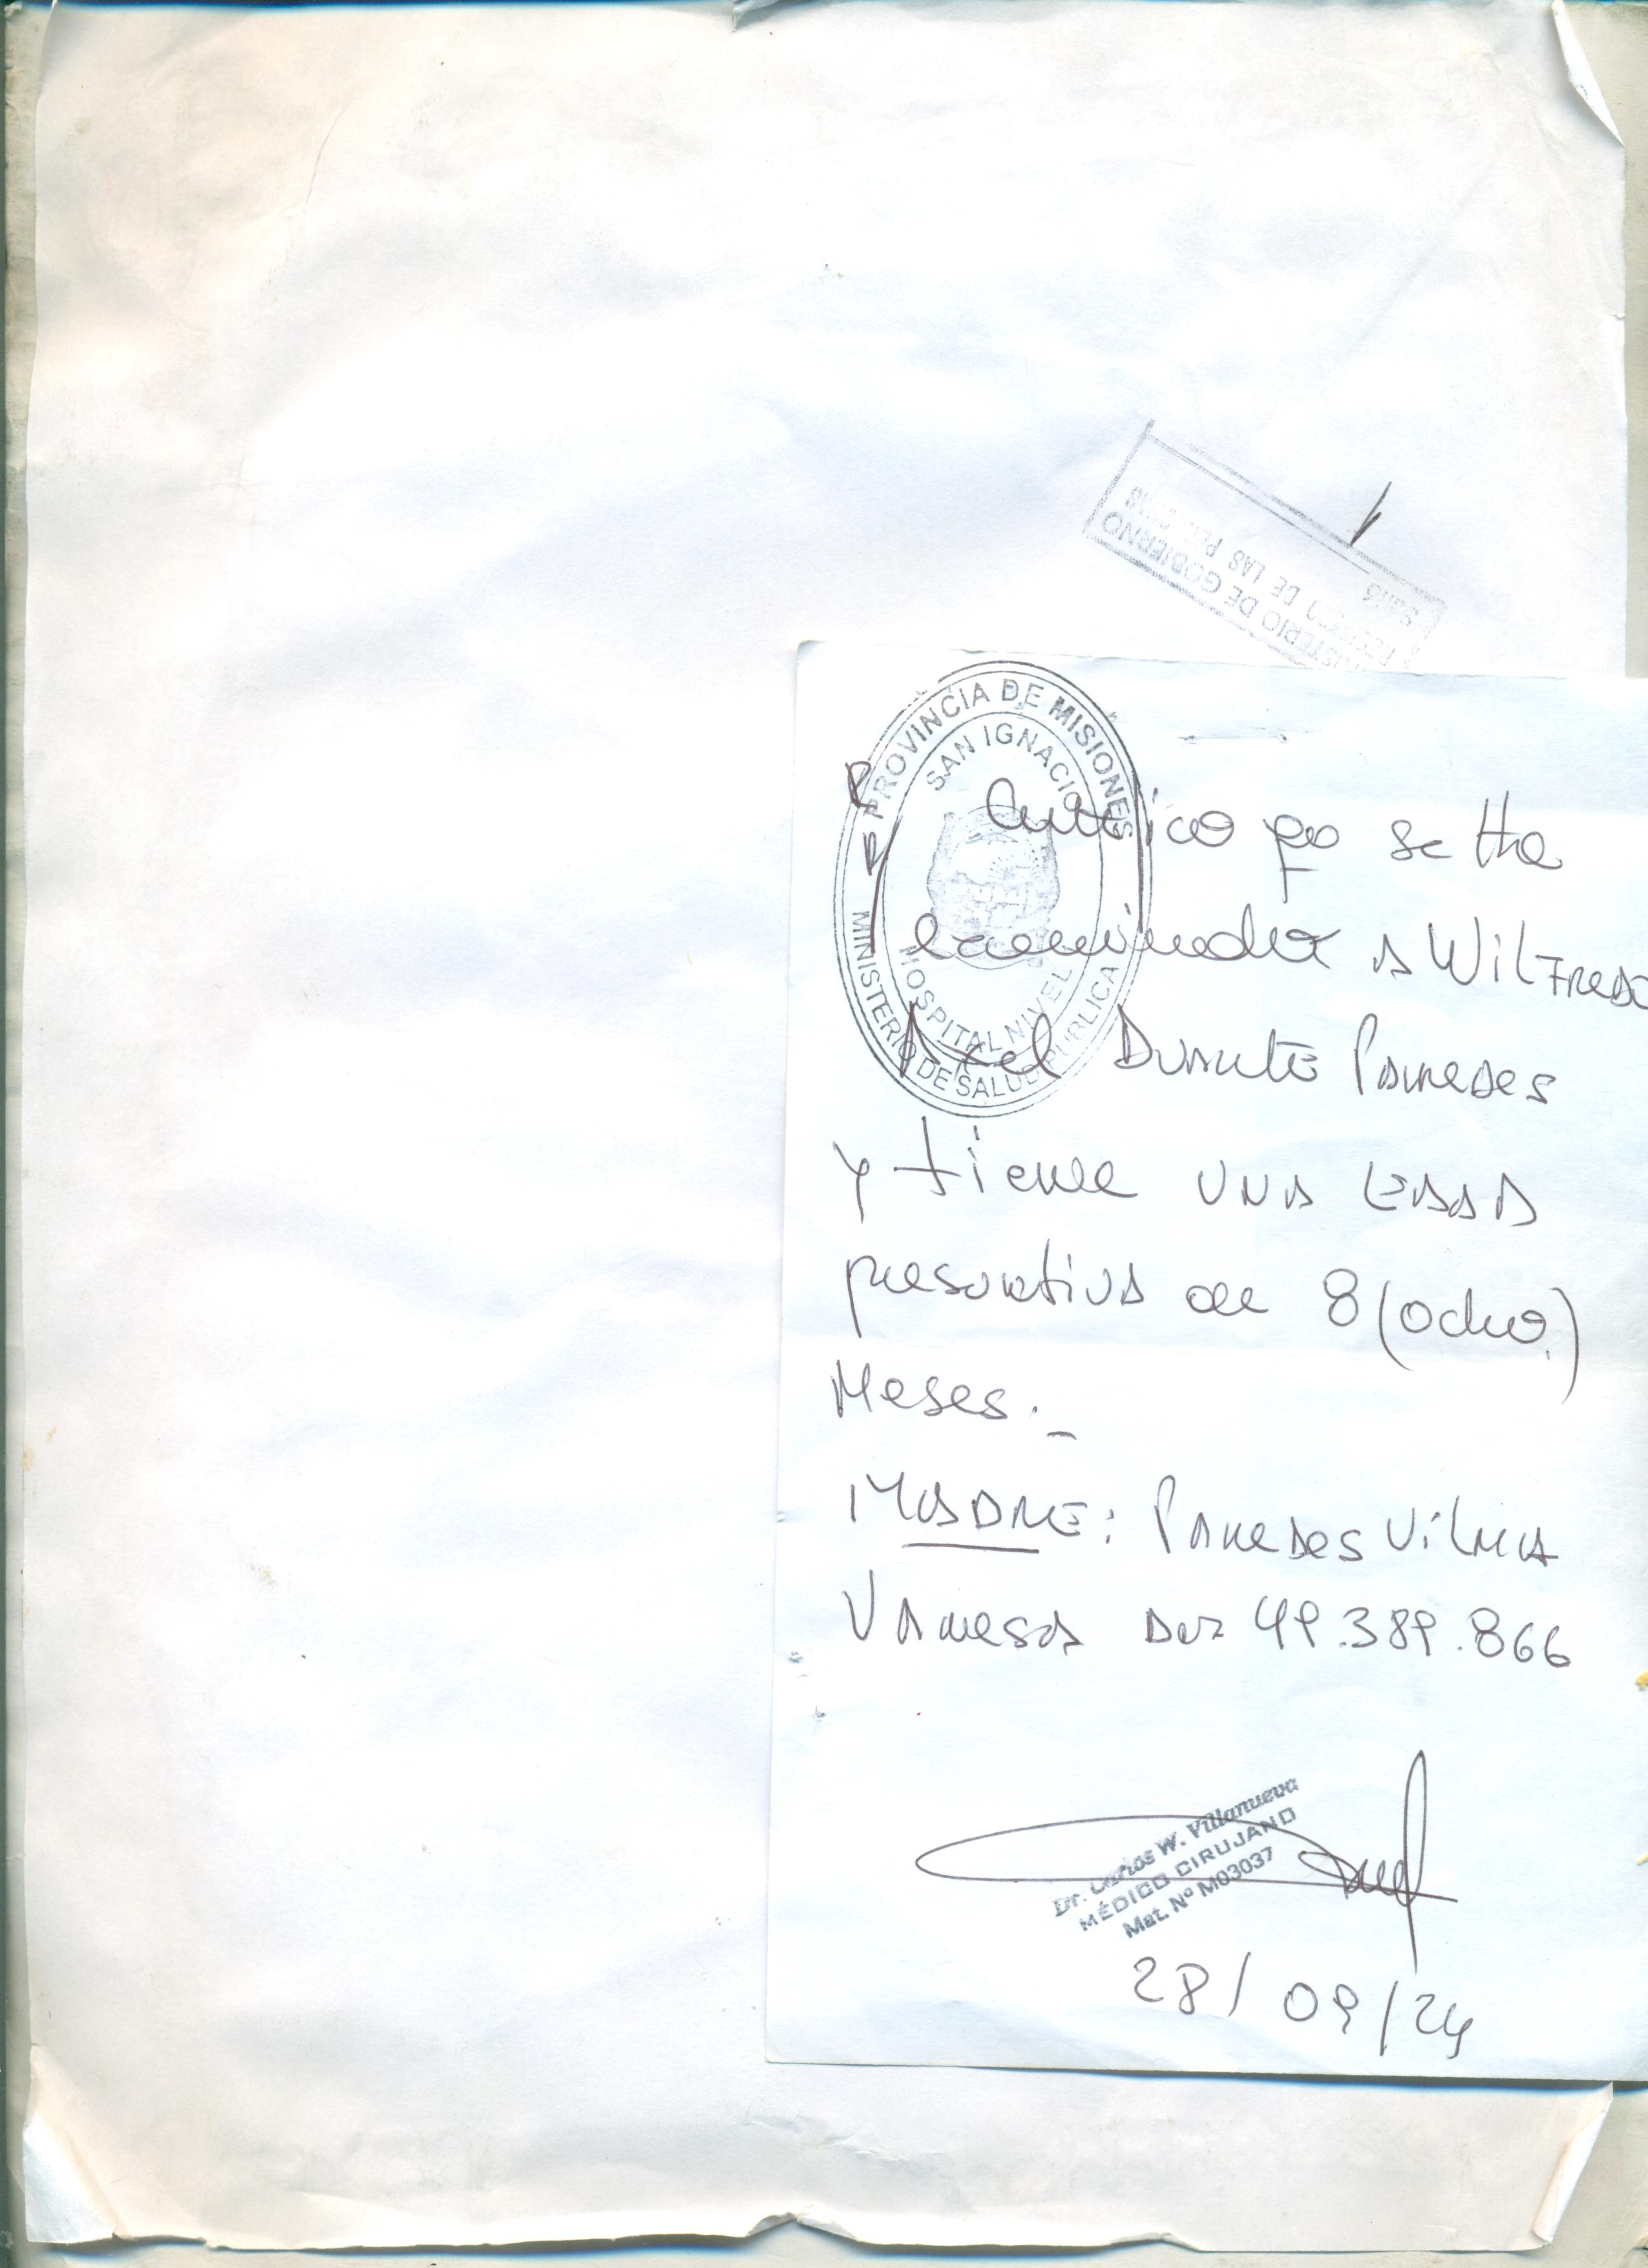 MINISTERIO DE GOBIERNO
DE LAS
PROVINCIA DE MISIONES
SAN IGNACIO
HOSPITAL NIVEL
MINISTERIO DE SALUD PUBLICA
Certifico qe se Ha
examinado a Wilfredo
Axel Duarte Paredes
y tiene una edad
presuntiva de 8 (ocho)
Meses._
MADRE: Paredes Vilma
Vanesa DNI 49.389.866
Dr. Carlos W. Villanueva
MÉDICO CIRUJANO
Mat. Nº M03037
28/09/24